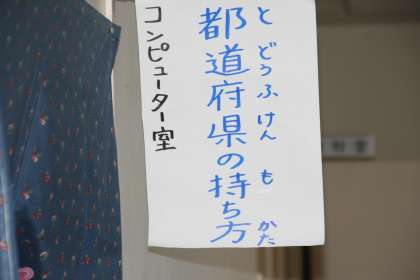 とどうふけん も かた
都道府県の持ち方
コンピューター室